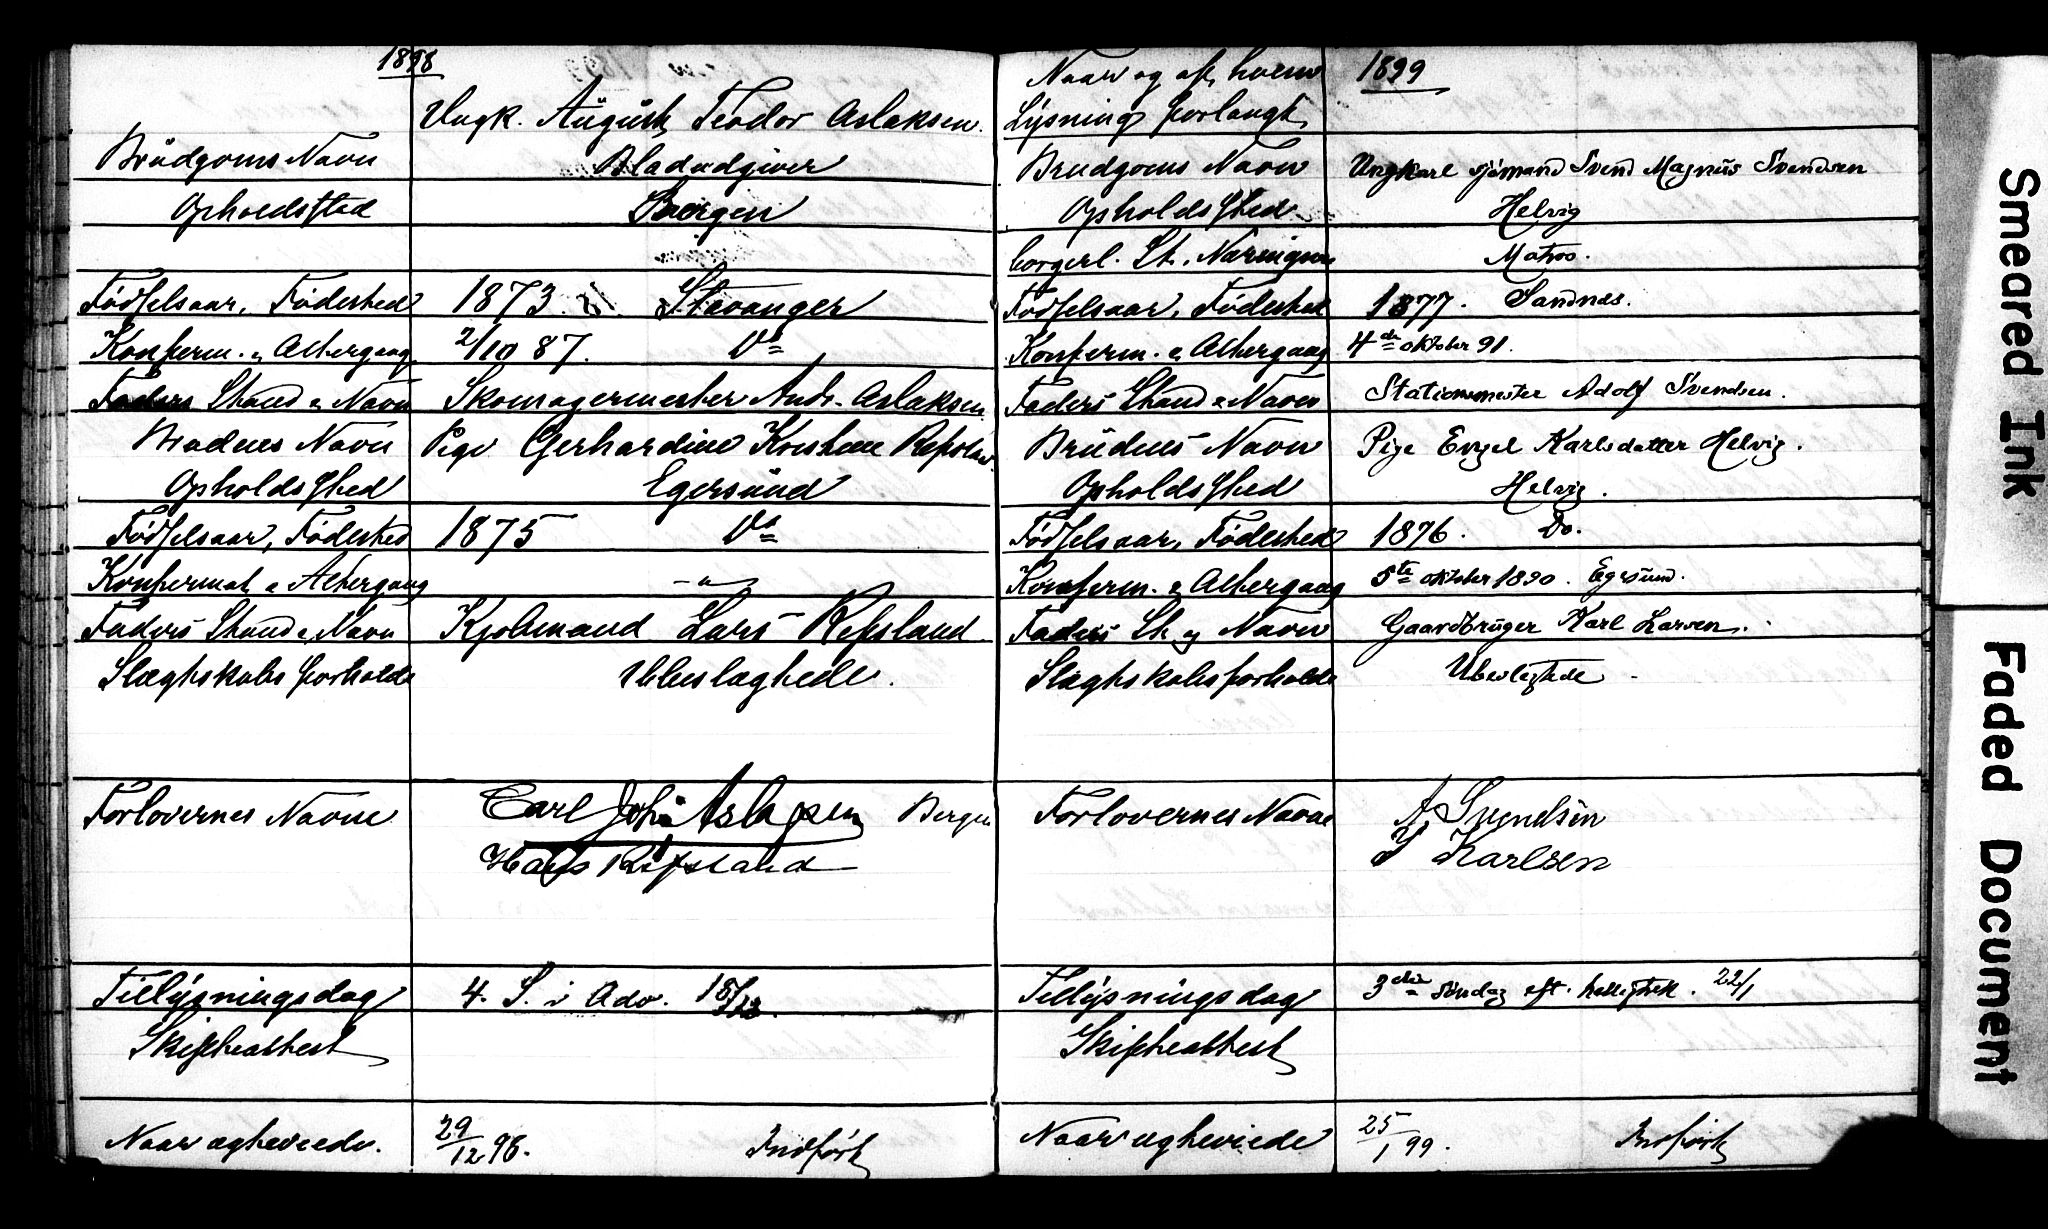 1898
Ungk. August Teodor Aslaksen.
Brudgoms Navn Bladudgiver
Opholdssted Bergen
Fødselsaar, Fødested 1873. Stavanger
Konferm. & Altergang 2/10 87. Do
Faders Stand & Navn Skomagermester Andr. Aslaksen
Brudens Navn Pige Gerhardine Refsland
Opholdssted Egersund
Fødselsaar, Fødested 1875 Do
Konfermat & Altergang - " -
Faders Stand & Navn Kjøbmand Lars Refsland
Slægtskabs forholde Ubbeslægtede.
Forlovernes Navne Carl Johan Aslaksen Bergen
Hans Refsland
Tillysningsdag 4. S. i Adv. 18/12.
Skifteattest
Naar ægteviede. 29/12 98. Indført
Naar og af hvem 1899
Lysning forlangt
Brudgoms Navn Ungkarl sjømand Svend Magnus Svendsen
Opholdssted Helvig
borgerl. St. Næringsv Matros.
Fødselsaar, Fødested 1877. Sandnes.
Konferm. & Altergang 4de oktober 91.
Faders Stand & Navn Stationsmester Adolf Svendsen.
Brudens Navn Pige Engel Karlsdatter Helvig.
Opholdssted Helvig.
Fødselsaar, Fødested 1876. Do.
Konferm. & Altergang 5te oktober 1890. Egersund.
Faders St. og Navn Gaardbruger Karl Larsen.
Slægtskabsforholde Ubeslegtede
Forlovernes Navne A Svendsen
Karlsen
Tillysningsdag 3die søndag eft. helligtrek. 22/1
Skifteattest
Naar ægteviede 25/1 99. Indført
Smeared Ink
Faded Document